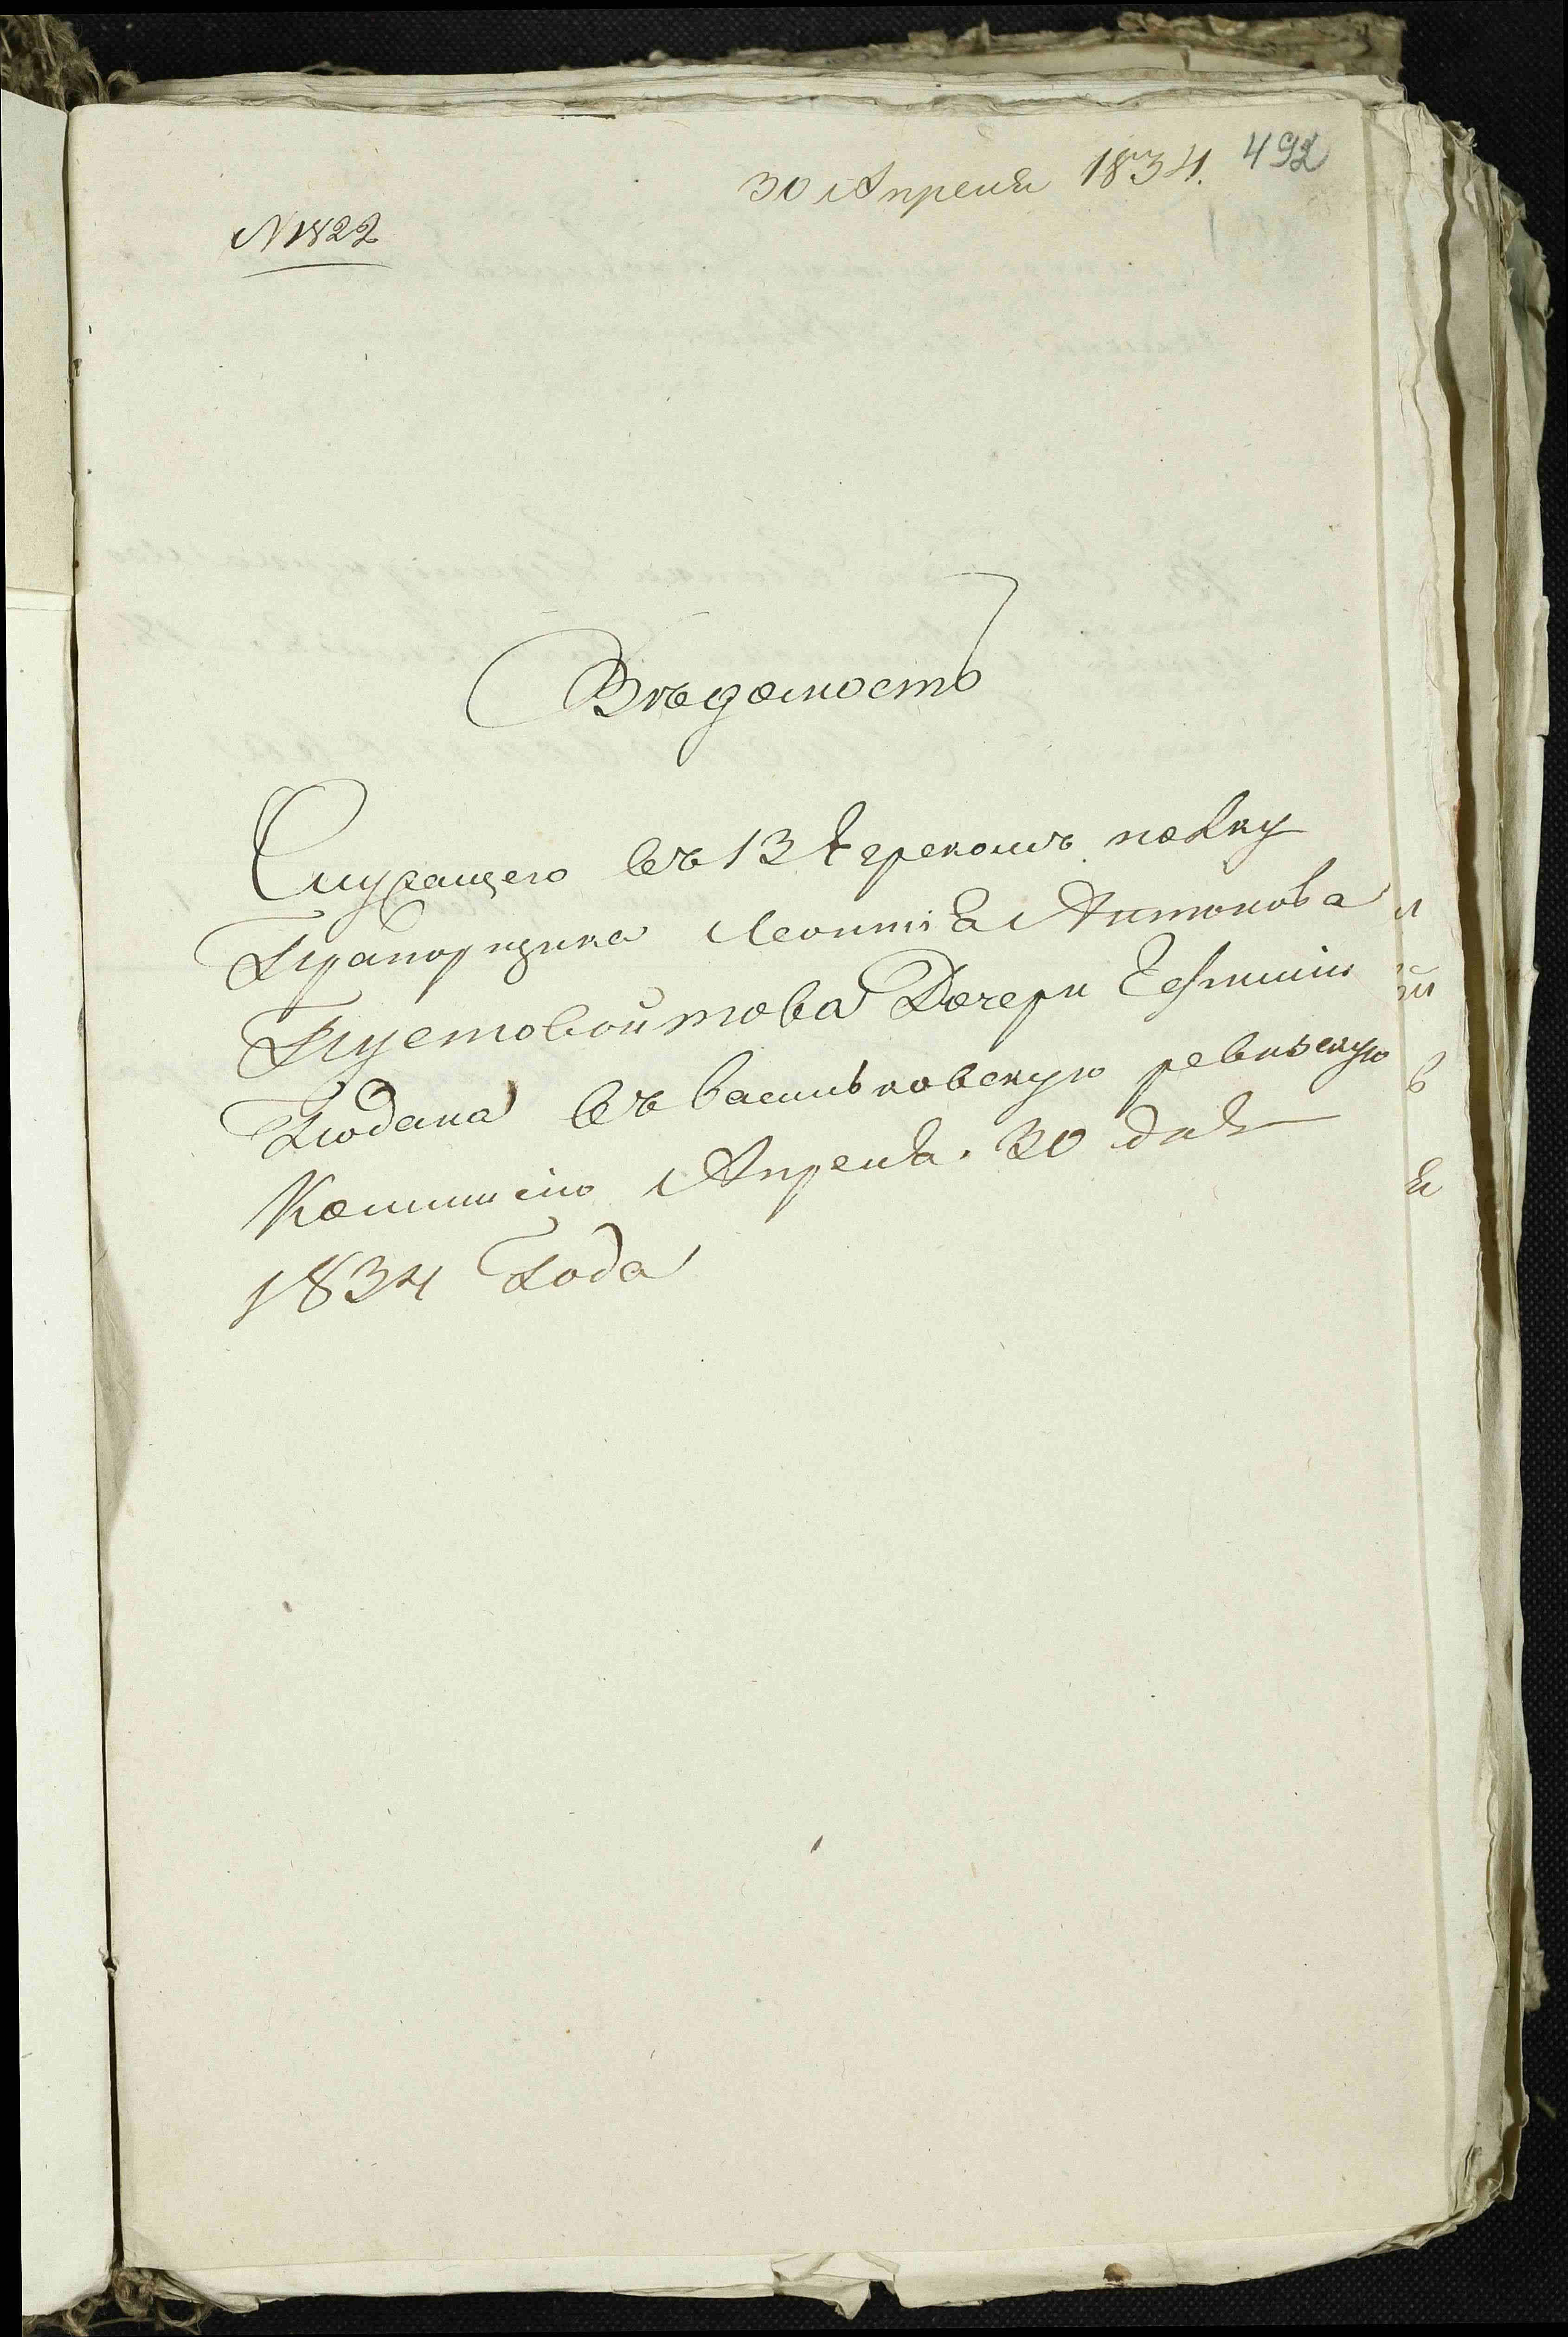 30 Апреля 1834. 492
№ 1822
Вѣдомость
Служащего въ 13 Егрскомъ полку
Прапорщика Леонтія Антонова
Пустовойтова Дочери Ефиміи
Подана въ васильковскую ревизскую
Коммисію Апреля. 30 дня
1834 Года